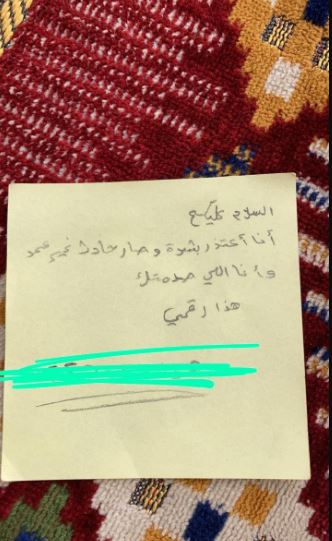 السلام عليكم
أنا أعتذر بشدة وصار حادث غير عمد
وأنا اللي صدمتك
هذا رقمي